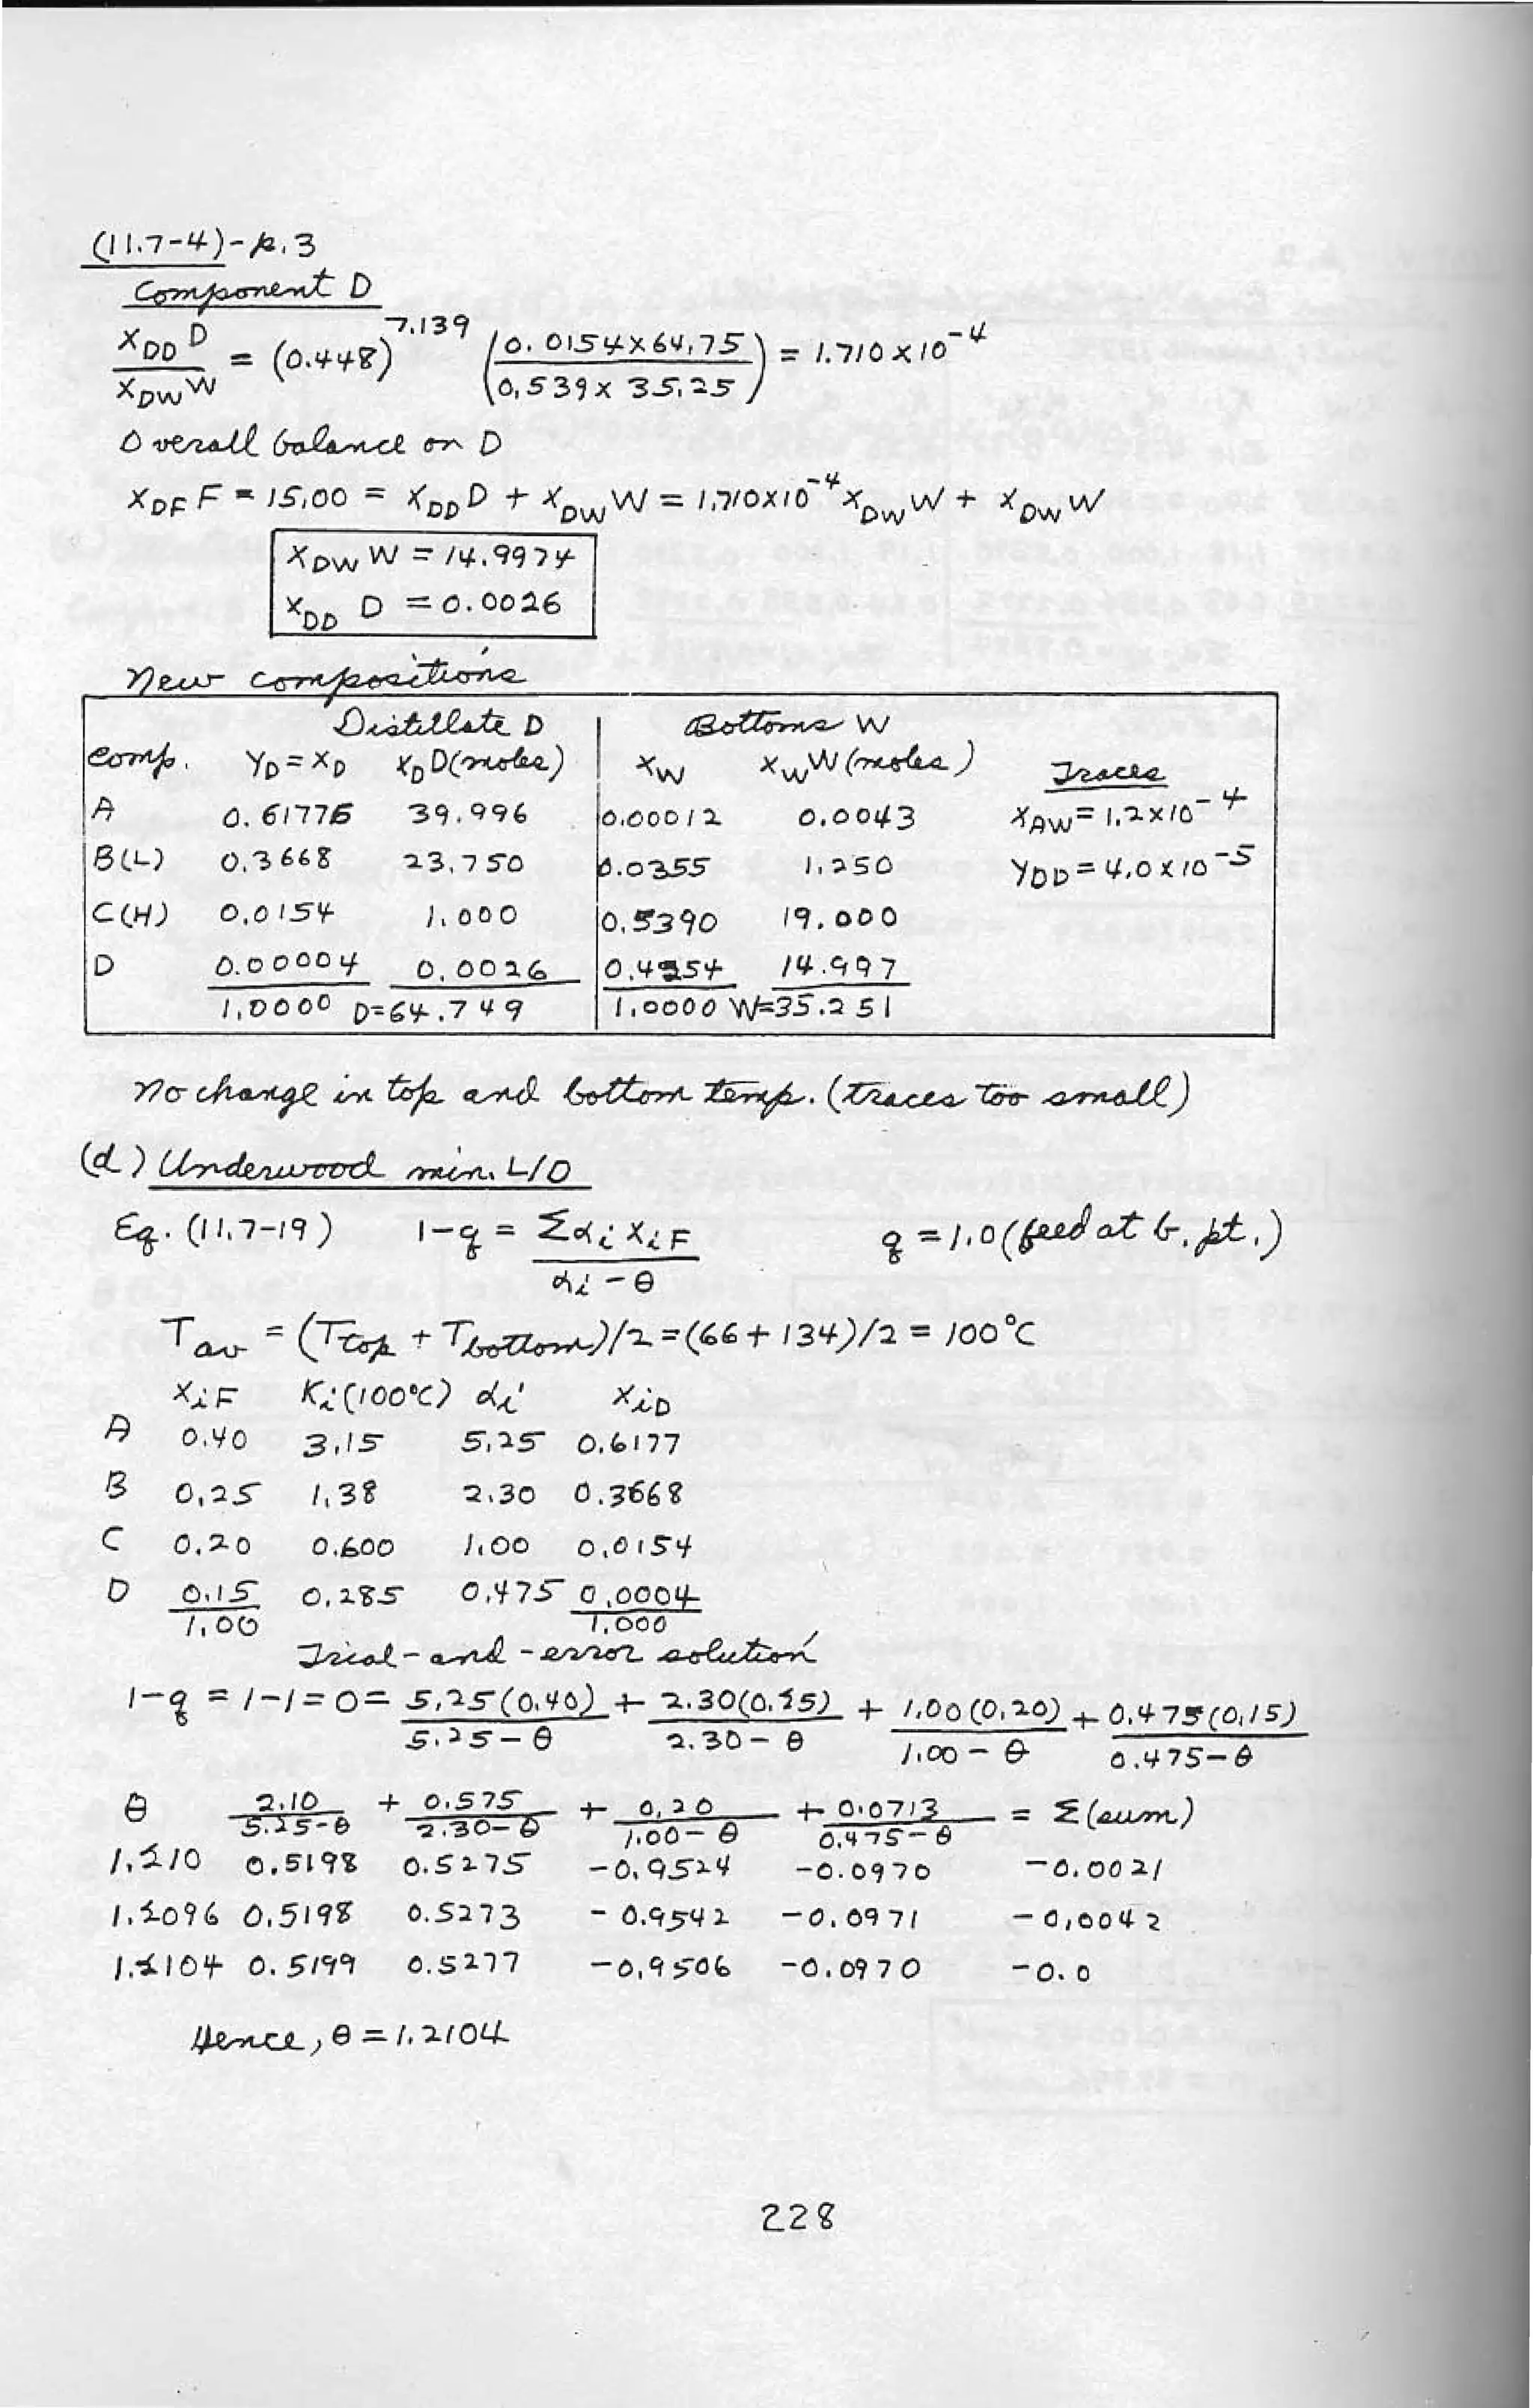 (11.7-4)-p.3
Component D
x_DD D / x_DW W = (0.448)^7.139 (0.0154×64.75 / 0.539×35.25) = 1.710×10^-4
Overall balance on D
x_DF F = 15.00 = x_DD D + x_DW W = 1.710×10^-4 x_DW W + x_DW W
x_DW W = 14.9974
x_DD D = 0.0026
New compositions
Distillate D Bottoms W
Comp. y_D = x_D x_D D (moles) x_W x_W W (moles) Traces
A 0.61776 39.996 0.00012 0.0043 x_AW = 1.2×10^-4
B(L) 0.3668 23.750 0.0355 1.250 y_DD = 4.0×10^-5
C(H) 0.0154 1.000 0.5390 19.000
D 0.00004 0.0026 0.4254 14.997
1.0000 D=64.749 1.0000 W=35.251
No change in top and bottom temp. (traces too small)
(d) Underwood min. L/D
Eq. (11.7-19) 1-q = Σα_i x_iF / α_i - θ q = 1.0 (feed at b. pt.)
T_av = (T_top + T_bottom)/2 = (66+134)/2 = 100°C
x_iF K_i(100°C) α_i x_iD
A 0.40 3.15 5.25 0.6177
B 0.25 1.38 2.30 0.3668
C 0.20 0.600 1.00 0.0154
D 0.15 0.285 0.475 0.0004
1.00 1.000
Trial-and-error solution
1-q = 1-1 = 0 = 5.25(0.40) / 5.25-θ + 2.30(0.25) / 2.30-θ + 1.00(0.20) / 1.00-θ + 0.475(0.15) / 0.475-θ
θ 2.10 / 5.25-θ + 0.575 / 2.30-θ + 0.20 / 1.00-θ + 0.0713 / 0.475-θ = Σ(sum)
1.210 0.5198 0.5275 -0.9524 -0.0970 -0.0021
1.2096 0.5198 0.5273 -0.9542 -0.0971 -0.0042
1.2104 0.5199 0.5277 -0.9506 -0.0970 -0.0
Hence, θ = 1.2104
228